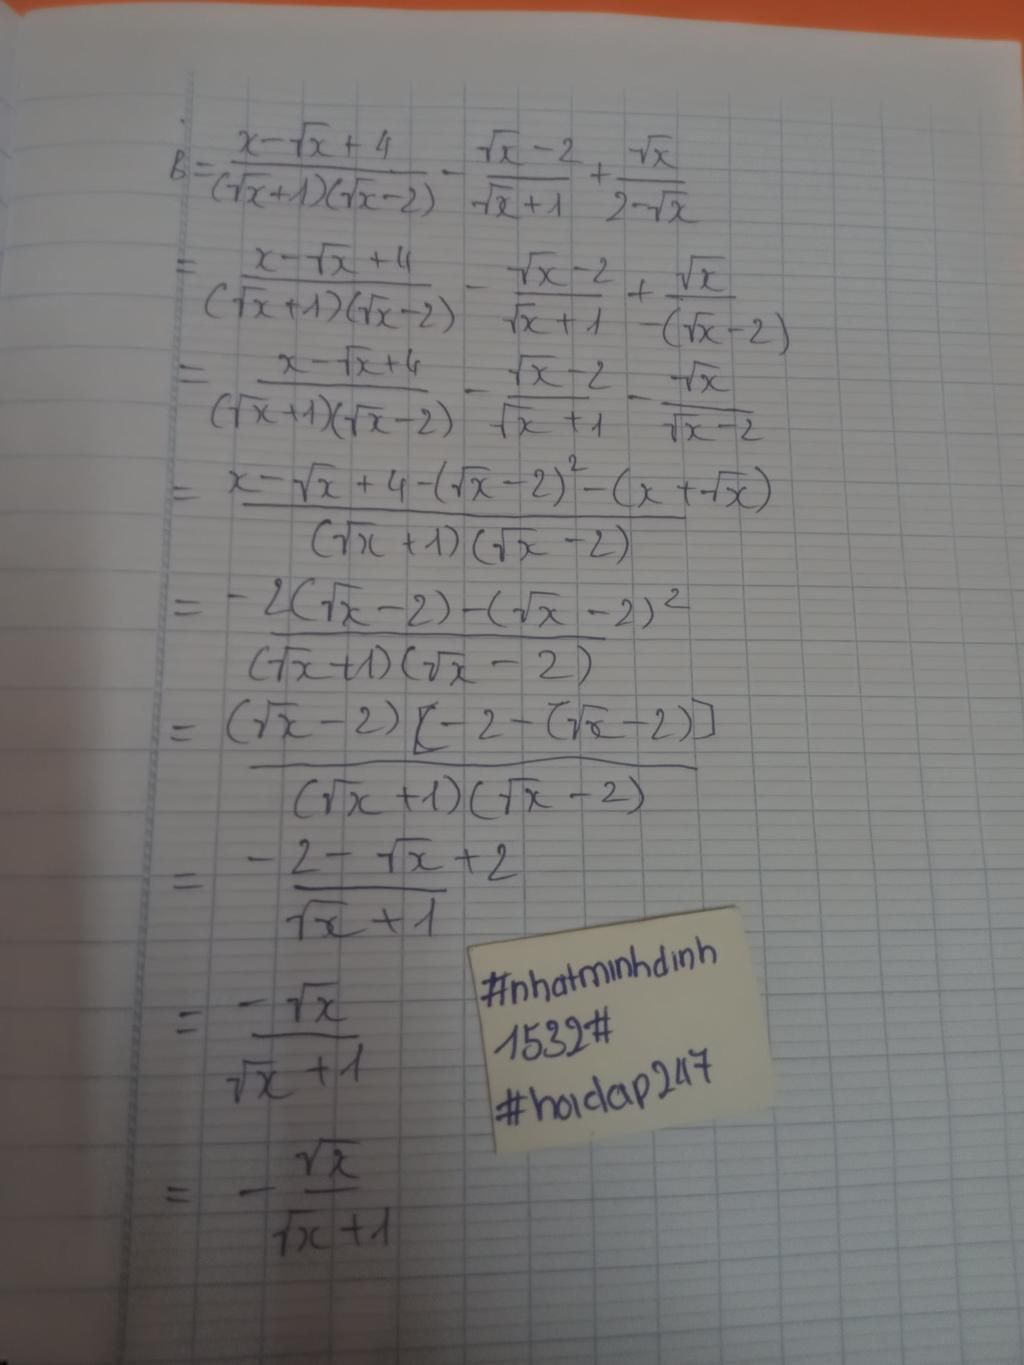 B = \frac{x-\sqrt{x}+4}{(\sqrt{x}+1)(\sqrt{x}-2)} - \frac{\sqrt{x}-2}{\sqrt{x}+1} + \frac{\sqrt{x}}{2-\sqrt{x}}
= \frac{x-\sqrt{x}+4}{(\sqrt{x}+1)(\sqrt{x}-2)} - \frac{\sqrt{x}-2}{\sqrt{x}+1} + \frac{\sqrt{x}}{-(\sqrt{x}-2)}
= \frac{x-\sqrt{x}+4}{(\sqrt{x}+1)(\sqrt{x}-2)} - \frac{\sqrt{x}-2}{\sqrt{x}+1} - \frac{\sqrt{x}}{\sqrt{x}-2}
= \frac{x-\sqrt{x}+4-(\sqrt{x}-2)^2-(x+\sqrt{x})}{(\sqrt{x}+1)(\sqrt{x}-2)}
= \frac{-2(\sqrt{x}-2)-(\sqrt{x}-2)^2}{(\sqrt{x}+1)(\sqrt{x}-2)}
= \frac{(\sqrt{x}-2)[-2-(\sqrt{x}-2)]}{(\sqrt{x}+1)(\sqrt{x}-2)}
= \frac{-2-\sqrt{x}+2}{\sqrt{x}+1}
= \frac{-\sqrt{x}}{\sqrt{x}+1}
= -\frac{\sqrt{x}}{\sqrt{x}+1}
#nhatminhdinh
1532#
#hoidap247